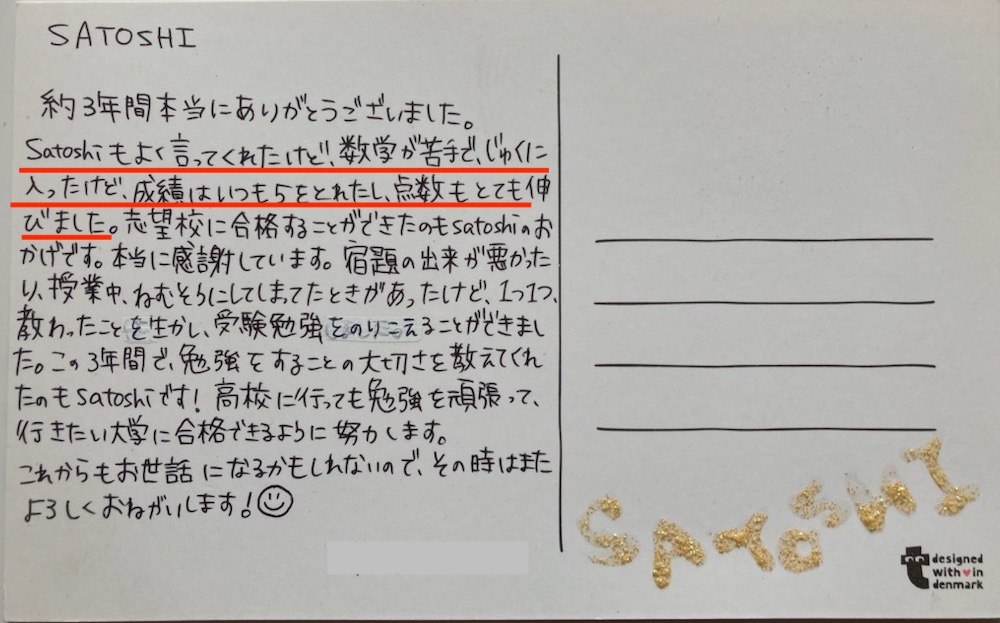 SATOSHI
約3年間本当にありがとうございました。
Satoshiもよく言ってくれたけど、数学が苦手で、じゅくに
入ったけど、成績はいつも5をとれたし、点数もとても伸
びました。志望校に合格することができたのもsatoshiのお
かげです。本当に感謝しています。宿題の出来が悪かった
り、授業中、ねむそうにしてしまってたときがあったけど、1つ1つ、
教わったことを生かし、受験勉強をのりこえることができまし
た。この3年間で、勉強をすることの大切さを教えてくれ
たのもsatoshiです！高校に行っても勉強を頑張って、
行きたい大学に合格できるように努力します。
これからもお世話になるかもしれないので、その時はまた
よろしくおねがいします！
SATOSHI
designed
with♥in
denmark